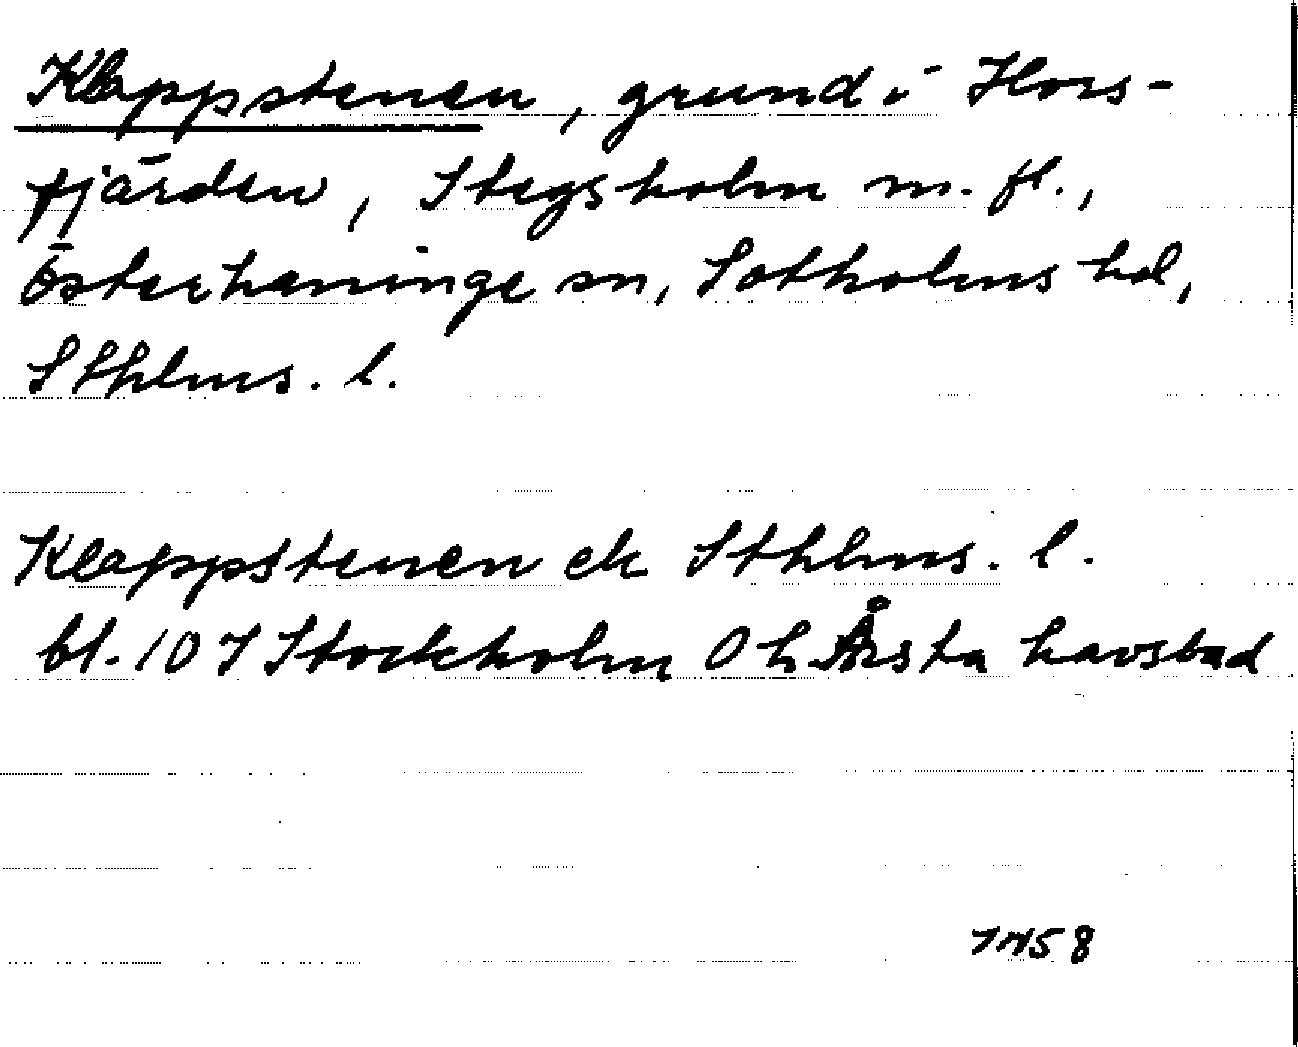 Klappstenen, grund i Hors-
fjärden, Stegsholm m. fl.,
Österhaninge sn, Sotholms hd,
Sthlms. l.
Klappstenen ek Sthlms. l.
bl. 10 I Stockholm O h Årsta havsbad